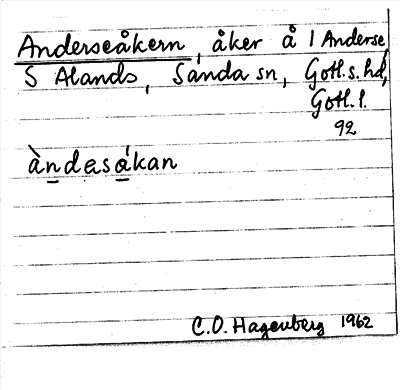 Anderseåkern, åker å 1 Anderse
S Ålands, Sanda sn, Gotl. s. hd,
Gotl. l.
92
àndasákan
C.O. Hagenberg 1962